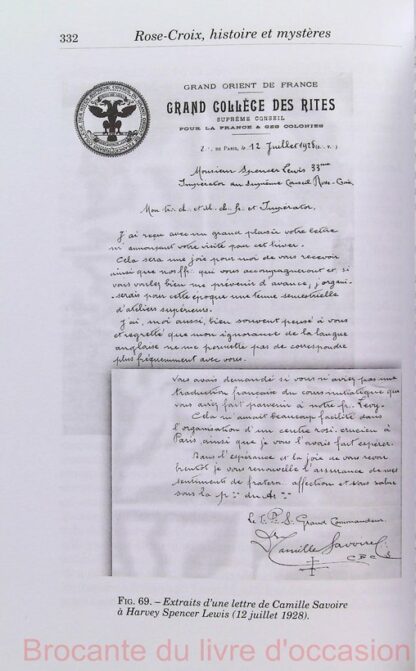 332
Rose-Croix, histoire et mystères
GRAND ORIENT DE FRANCE
GRAND COLLÈGE DES RITES
SUPRÊME CONSEIL
POUR LA FRANCE & SES COLONIES
DE PARIS, 4, 12 Juillet 1928 (E. V.)
Monsieur Spencer Lewis 33me
Imperator au Suprême Conseil Rose-Croix
Mon et Imperator,
J'ai reçu avec un grand plaisir votre lettre
m'annonçant votre visite pour cet hiver.
Cela sera une joie pour moi de vous recevoir
ainsi que nos ff. qui vous accompagneront et, si
vous voulez bien me prévenir d'avance, j'organi-
-serais pour cette époque une tenue semestrielle
d'ateliers supérieurs.
J'ai, moi aussi, bien souvent pensé à vous
et regretté que mon ignorance de la langue
anglaise ne me permette pas de correspondre
plus fréquemment avec vous.
Vous avais demandé si vous n'aviez pas une
traduction française du que
vous aviez fait parvenir à notre fr. Levy.
Cela m'aurait beaucoup facilité dans
l'organisation d'un centre rosi-crucien à
Paris ainsi que je vous l'avais fait espérer.
Dans l'espérance et la joie de vous revoir
bientôt je vous renouvelle l'assurance de mes
sentiments de fratern. affection et vous salue
sous la
le Grand Commandeur
Dr Camille Savoire
FIG. 69. – Extraits d'une lettre de Camille Savoire
à Harvey Spencer Lewis (12 juillet 1928).
Brocante du livre d'occasion